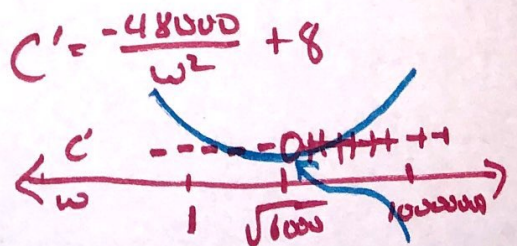 C' = -48000/w² + 8
C' - - - - - 0 + + + + + +
w 1 √6000 1000000